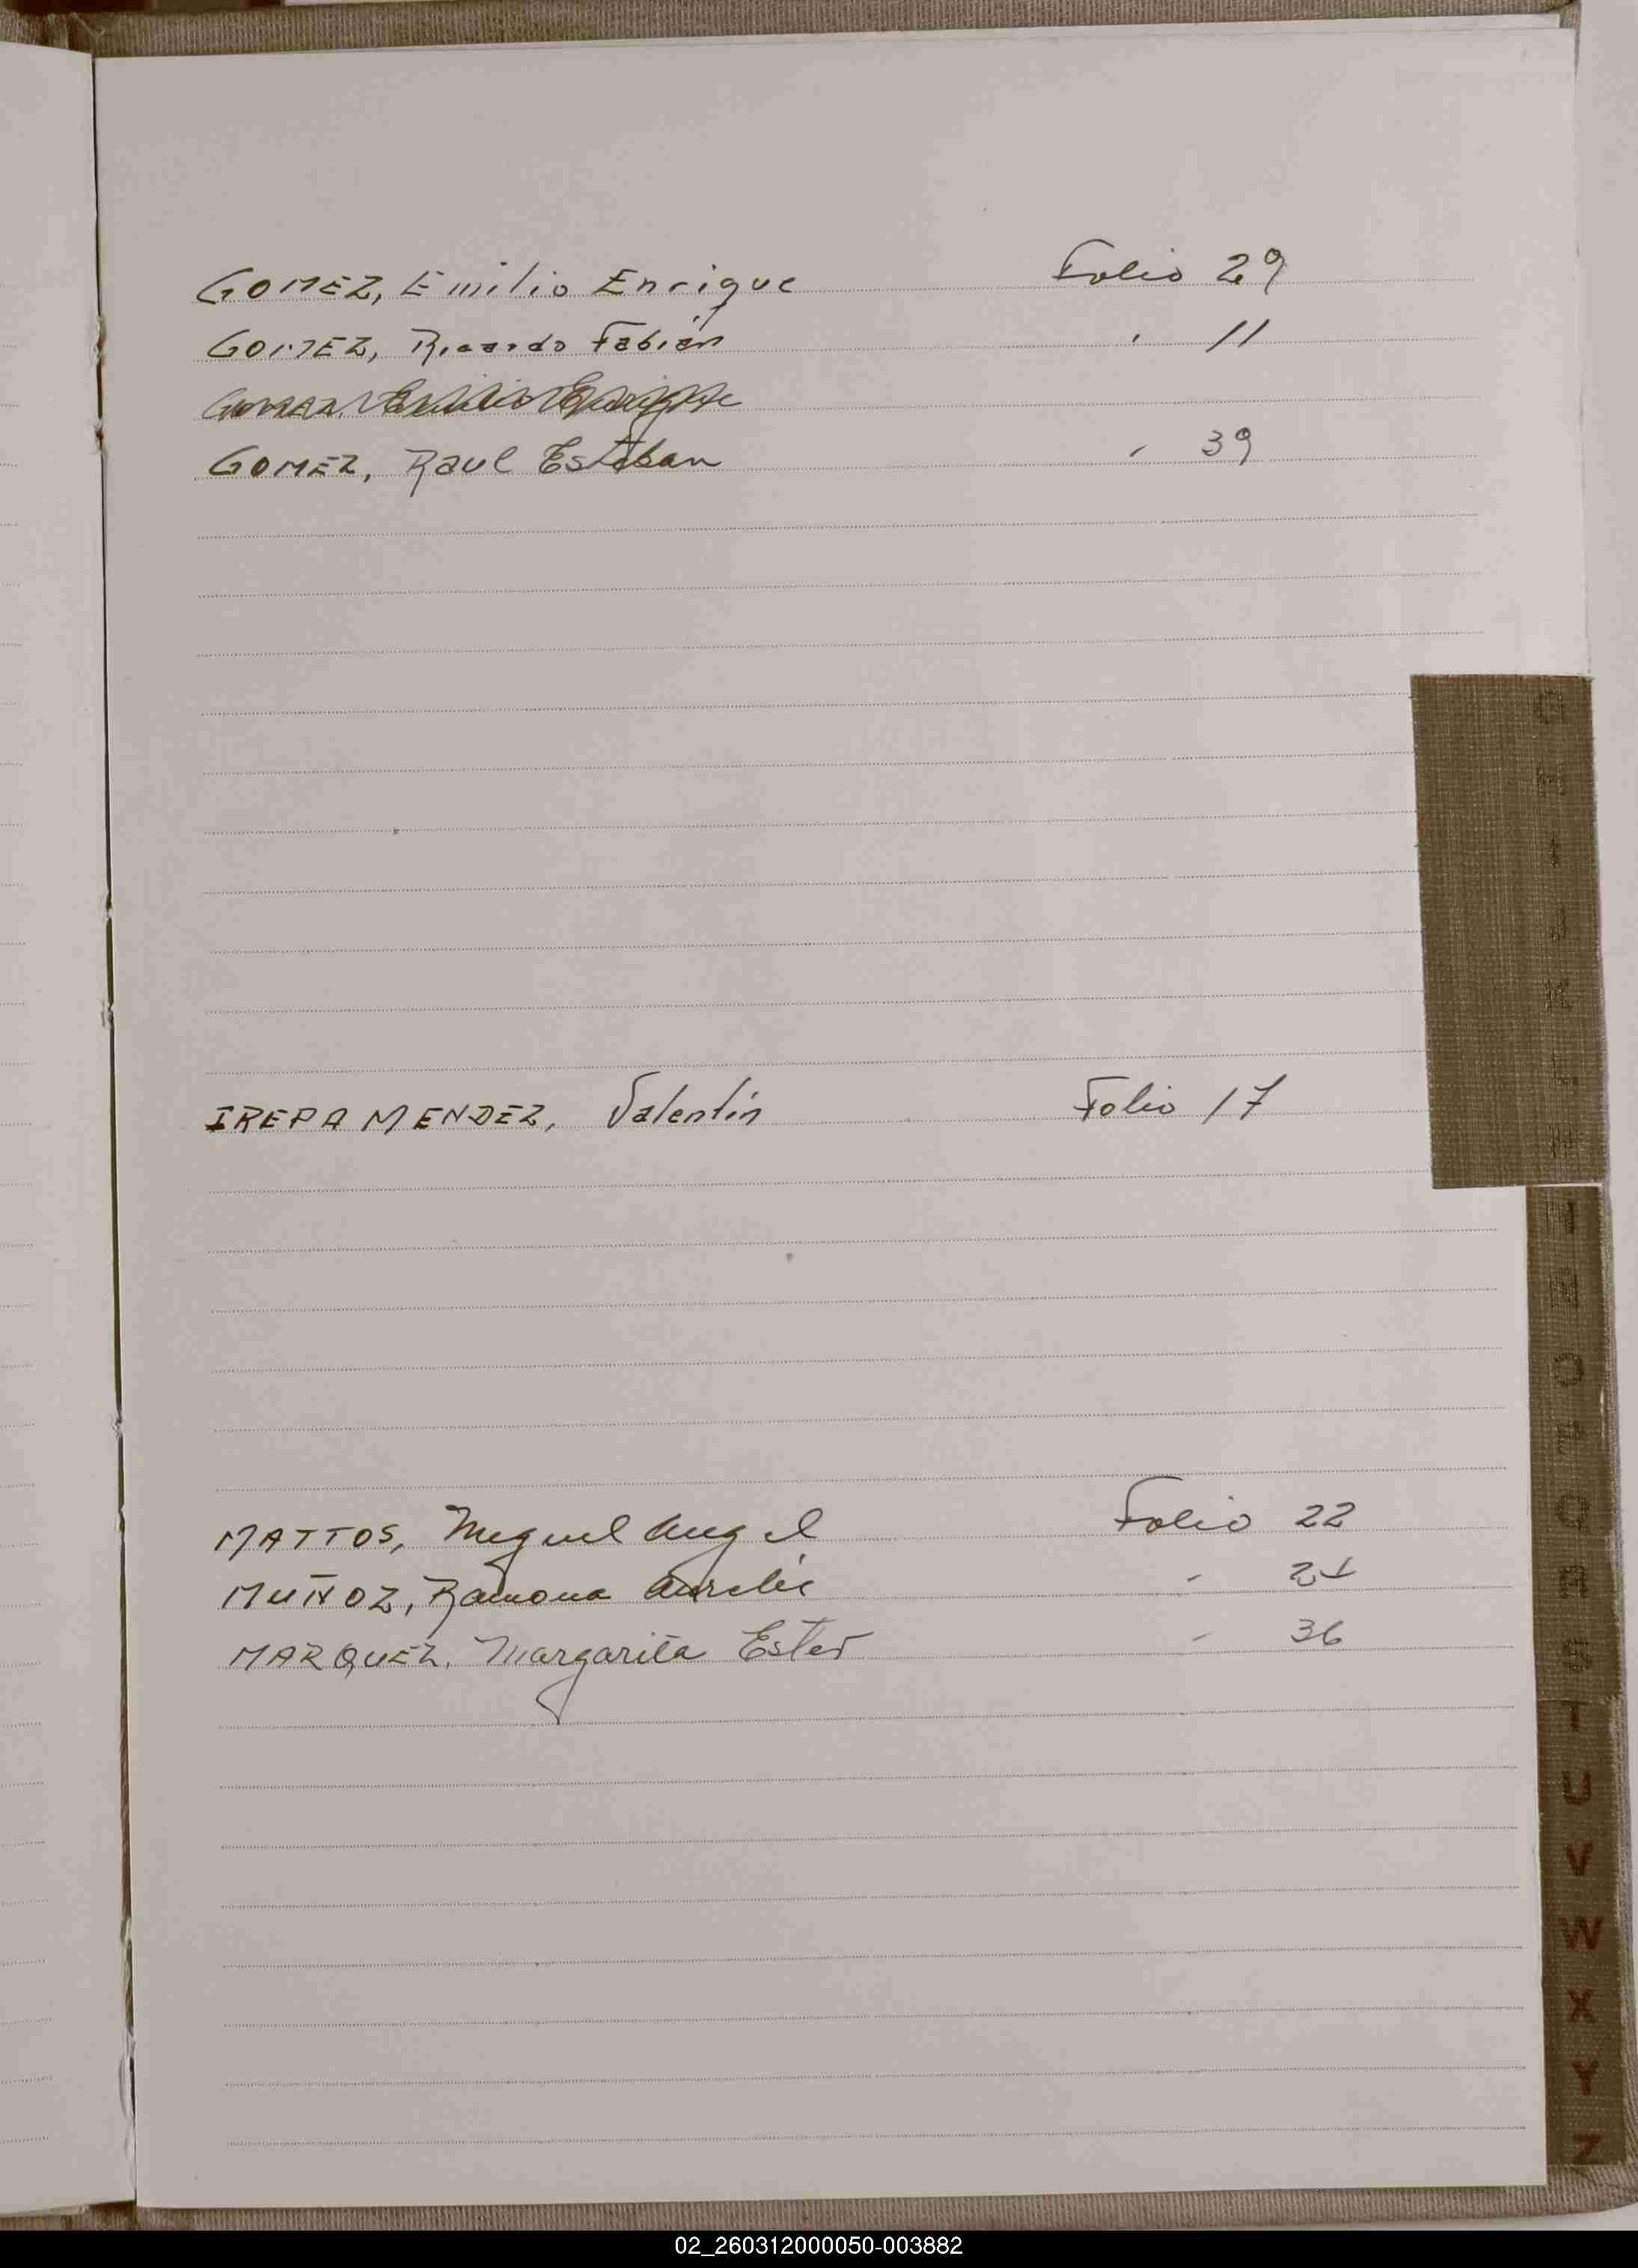 GOMEZ, Emilio Enrique Folio 29
GOMEZ, Ricardo Fabián " 11
GOMEZ, Raul Esteban " 39
IREPA MENDEZ, Valentín Folio 17
MATTOS, Miguel Angel Folio 22
MUÑOZ, Ramona Aurelia "
MARQUEZ, Margarita Ester " 36
T
U
V
W
X
Y
Z
02_260312000050-003882